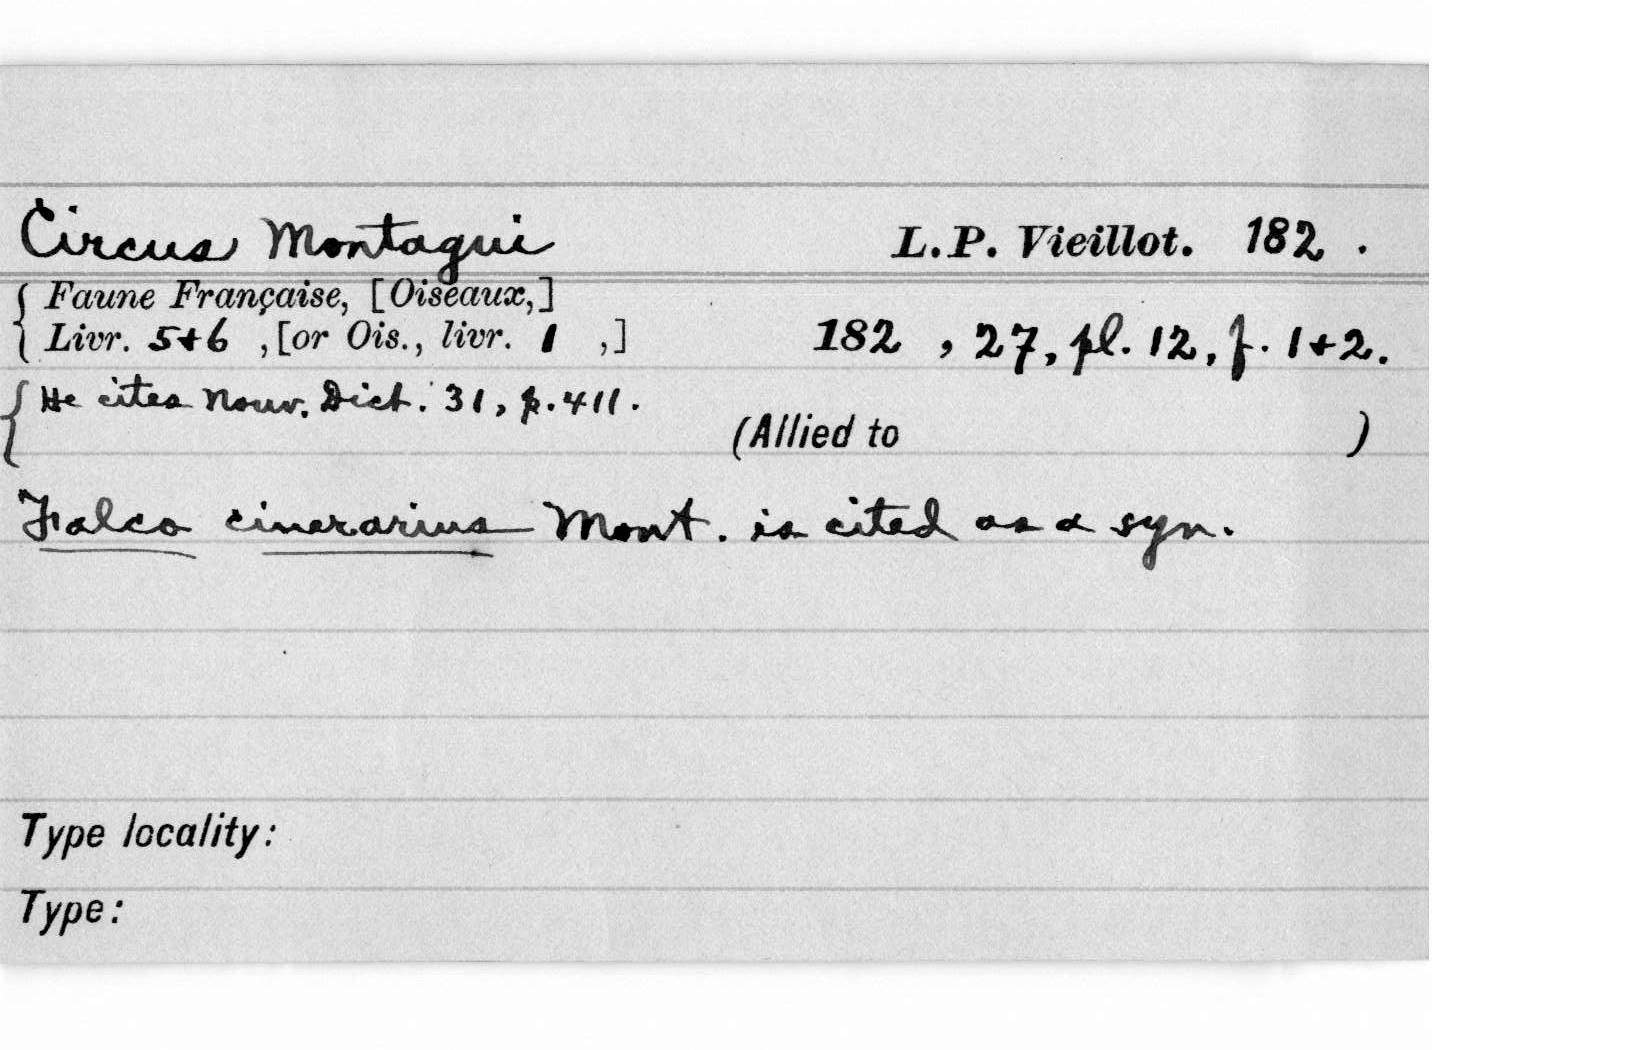 Circus Montagui L.P. Vieillot. 182 .
Faune Française, [Oiseaux,]
Livr. 5+6 ,[or Ois., livr. 1 ,] 182 , 27, pl. 12, f. 1+2.
He cites Nouv. Dict. 31, p. 411.
(Allied to )
Falco cinerarius Mont. is cited as a syn.
Type locality:
Type: